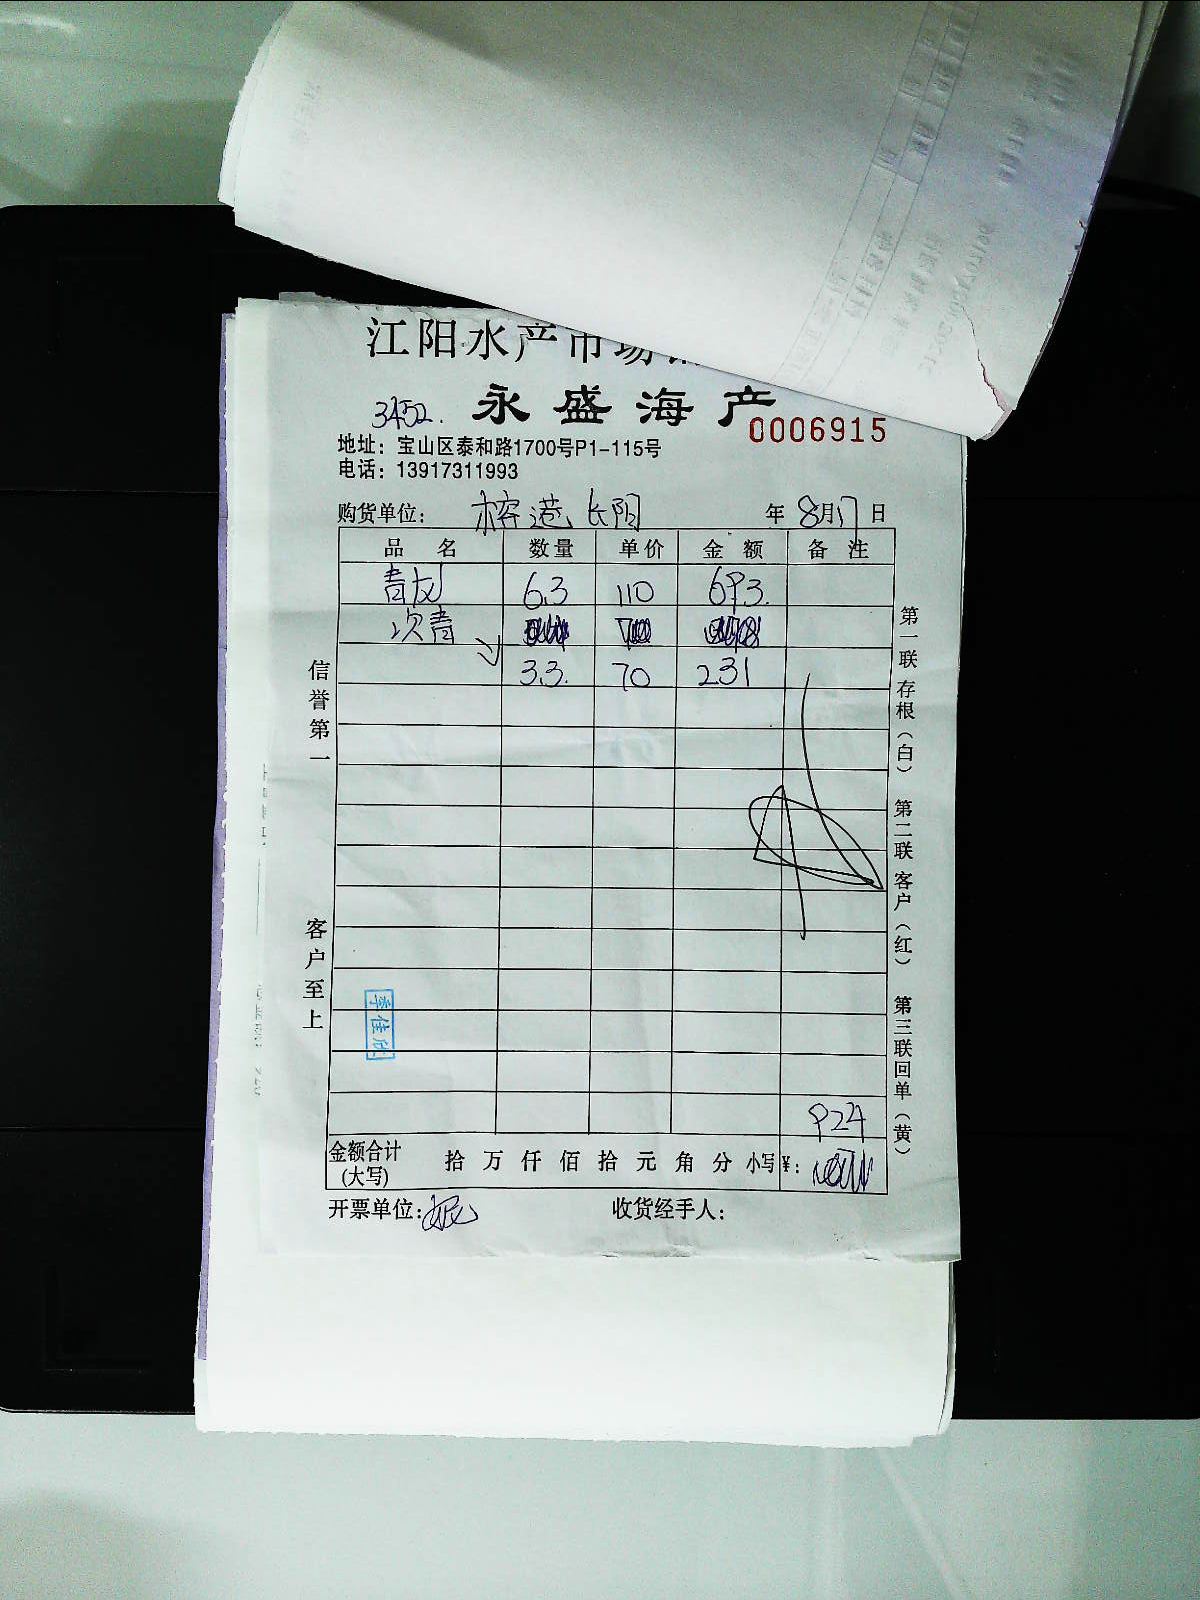 江阳水产市场
3452.
永盛海产
0006915
地址：宝山区泰和路1700号P1-115号
电话：13917311993
购货单位：榕港长阳 年 8月17日
品 名 数量 单价 金 额 备 注
青龙 6.3 110 693.
次青
3.3. 70 231
信誉第一
客户至上
第一联存根（白） 第二联客户（红） 第三联回单（黄）
李佳欣
924
金额合计(大写) 拾 万 仟 佰 拾 元 角 分 小写¥：
开票单位： 收货经手人：